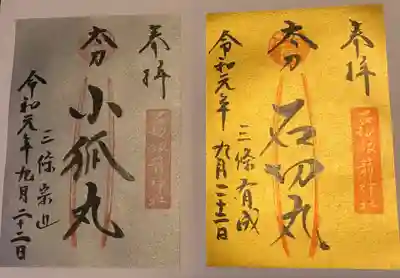 奉拝
太刀
石切丸
三條有成
令和元年九月二十二日
石切劔箭神社
奉拝
太刀
小狐丸
三條宗近
令和元年九月二十二日
石切劔箭神社